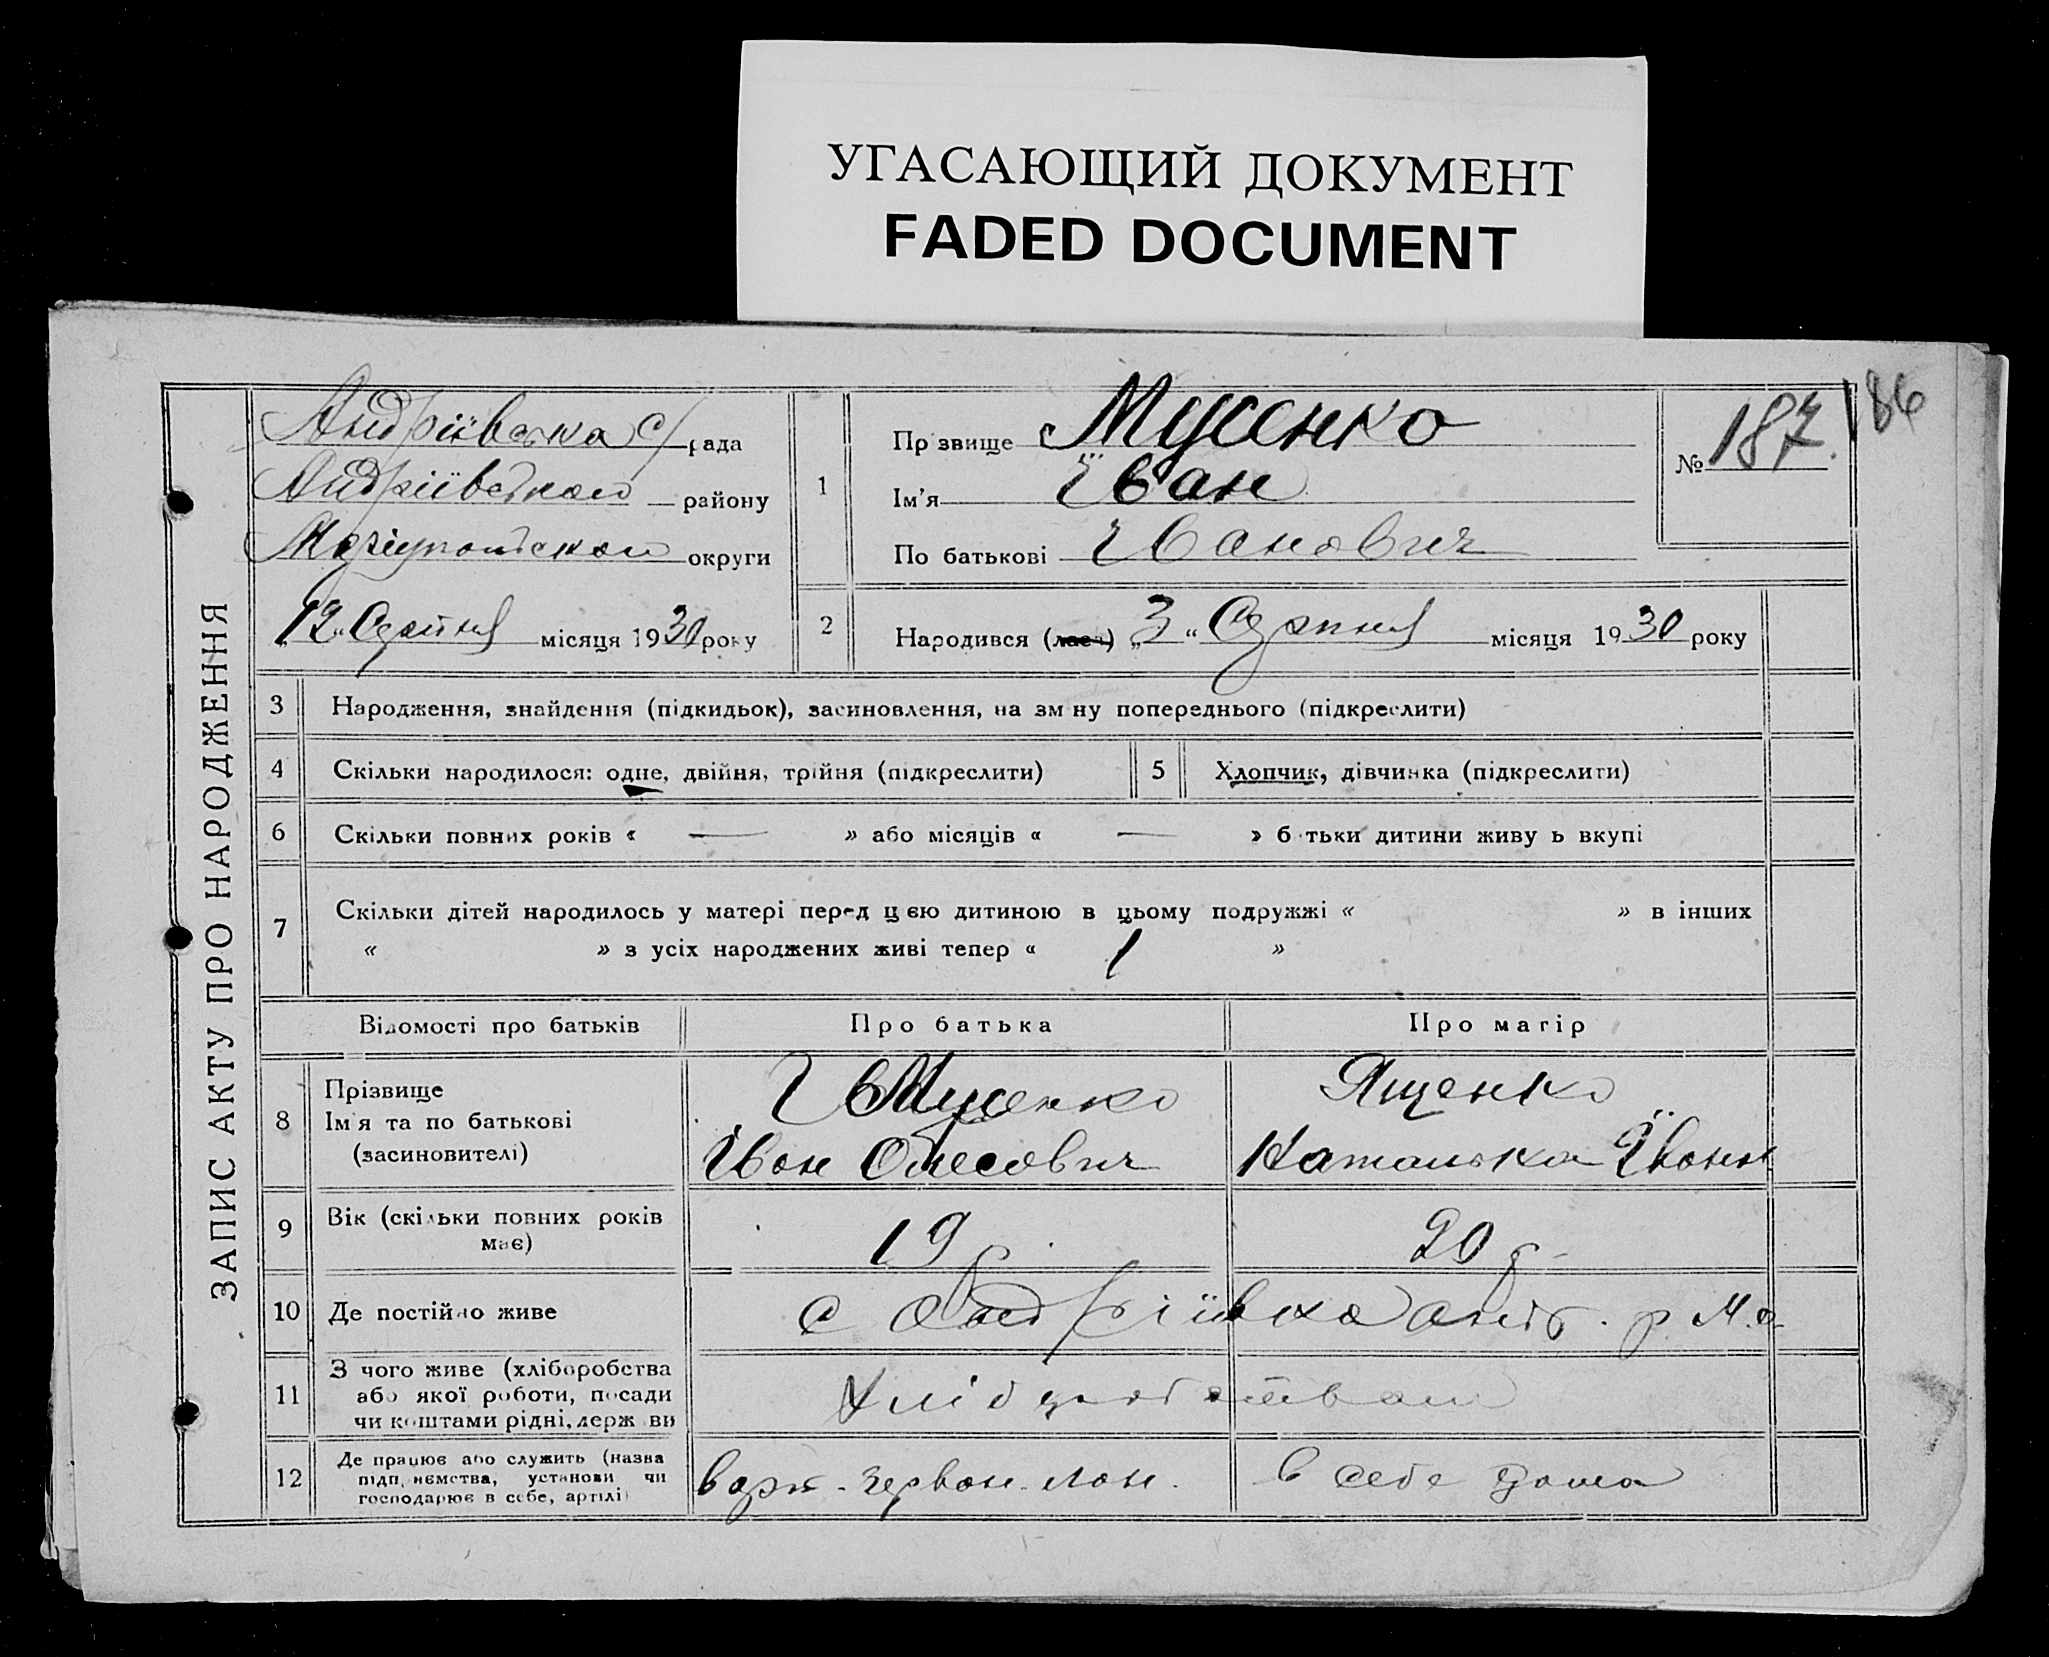 УГАСАЮЩИЙ ДОКУМЕНТ
FADED DOCUMENT
186
ЗАПИС АКТУ ПРО НАРОДЖЕННЯ
Андріївська с/рада
Андріївського району
Маріупольської округи
"12" Серпня місяця 1930 року
1
Прізвище Мусенко
Ім'я Іван
По батькові Іванович
№ 187.
2 Народився (лася) "3" Серпня місяця 1930 року
3 Народження, знайдення (підкидьок), засиновлення, на зміну попереднього (підкреслити)
4 Скільки народилося: одне, двійня, трійня (підкреслити)
5 Хлопчик, дівчинка (підкреслити)
6 Скільки повних років « — » або місяців « — » батьки дитини живуть вкупі
7 Скільки дітей народилось у матері перед цією дитиною в цьому подружжі « » в інших
« » з усіх народжених живі тепер « 1 »
Відомості про батьків Про батька Про матір
8 Прізвище
Ім'я та по батькові
(засновителі)
Мусенко
Іван
Ященко
Наталька Їванн
9 Вік (скільки повних років
має)
19 р.
20 р.
10 Де постійно живе
с Андріївка Андр. р. М.о.
11 З чого живе (хліборобства
або якої роботи, посади
чи коштами рідні, держави
12 Де працює або служить (назва
підприємства, установи чи
господарює в себе, артілі)
Червон. лан.
в себе дома